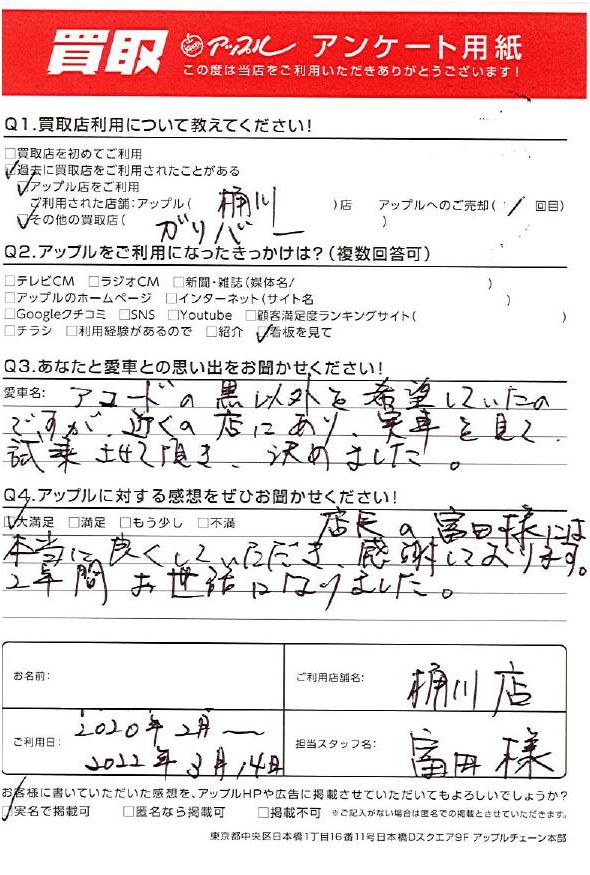 買取 アップル アンケート用紙
この度は当店をご利用いただきありがとうございます!
Q1.買取店利用について教えてください!
□買取店を初めてご利用
☑過去に買取店をご利用されたことがある
☑アップル店をご利用
ご利用された店舗:アップル( 桶川 )店 アップルへのご売却( 1 回目)
☑その他の買取店( ガリバー )
Q2.アップルをご利用になったきっかけは?(複数回答可)
□テレビCM □ラジオCM □新聞・雑誌(媒体名/ )
□アップルのホームページ □インターネット(サイト名 )
□Googleクチコミ □SNS □Youtube □顧客満足度ランキングサイト( )
□チラシ □利用経験があるので □紹介 ☑看板を見て
Q3.あなたと愛車との思い出をお聞かせください!
愛車名: アコードの黒以外を希望していたの
ですが、近くの店にあり、実車を見て、
試乗させて頂き、決めました。
Q4.アップルに対する感想をぜひお聞かせください!
☑大満足 □満足 □もう少し □不満 店長の富田様には
本当に良くしていただき、感謝しております。
2年間お世話になりました。
お名前:
ご利用店舗名: 桶川店
ご利用日: 2020年2月〜
2022年3月14日
担当スタッフ名: 富田様
お客様に書いていただいた感想を、アップルHPや広告に掲載させていただいてもよろしいでしょうか?
☑実名で掲載可 □匿名なら掲載可 □掲載不可 ※ご記入がない場合は匿名での掲載とさせていただきます。
東京都中央区日本橋1丁目16番11号日本橋Dスクエア9F アップルチェーン本部